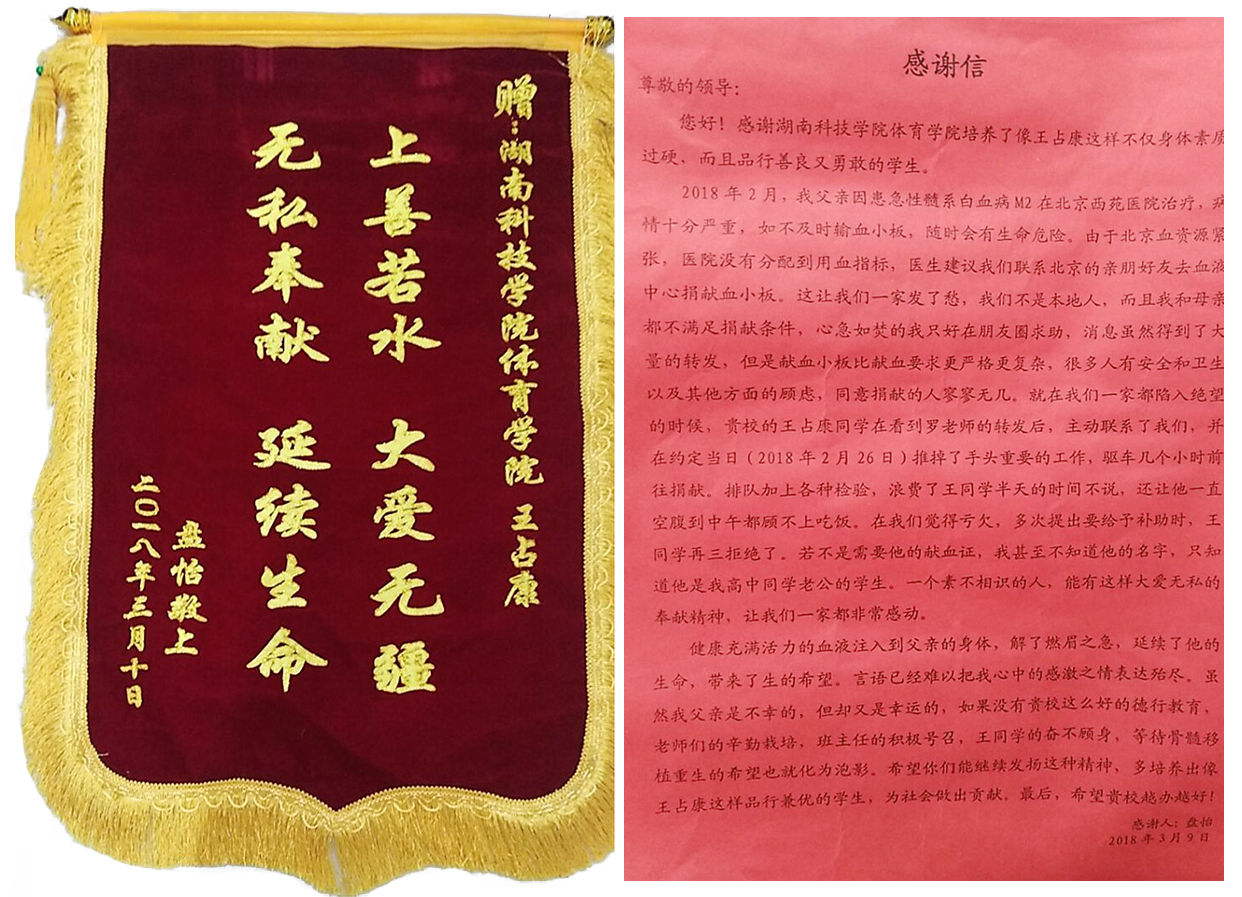 赠:湖南科技学院体育学院 王占康
上善若水 大爱无疆
无私奉献 延续生命
盘怡敬上
二〇一八年三月十日
感谢信
尊敬的领导：
您好！感谢湖南科技学院体育学院培养了像王占康这样不仅身体素质
过硬，而且品行善良又勇敢的学生。
2018年2月，我父亲因患急性髓系白血病M2在北京西苑医院治疗，病
情十分严重，如不及时输血小板，随时会有生命危险。由于北京血资源紧
张，医院没有分配到用血指标，医生建议我们联系北京的亲朋好友去血液
中心捐献血小板。这让我们一家发了愁，我们不是本地人，而且我和母亲
都不满足捐献条件，心急如焚的我只好在朋友圈求助，消息虽然得到了大
量的转发，但是献血小板比献血要求更严格更复杂，很多人有安全和卫生
以及其他方面的顾虑，同意捐献的人寥寥无几。就在我们一家都陷入绝望
的时候，贵校的王占康同学在看到罗老师的转发后，主动联系了我们，并
在约定当日（2018年2月26日）推掉了手头重要的工作，驱车几个小时前
往捐献。排队加上各种检验，浪费了王同学半天的时间不说，还让他一直
空腹到中午都顾不上吃饭。在我们觉得亏欠，多次提出要给予补助时，王
同学再三拒绝了。若不是需要他的献血证，我甚至不知道他的名字，只知
道他是我高中同学老公的学生。一个素不相识的人，能有这样大爱无私的
奉献精神，让我们一家都非常感动。
健康充满活力的血液注入到父亲的身体，解了燃眉之急，延续了他的
生命，带来了生的希望。言语已经难以把我心中的感激之情表达殆尽。虽
然我父亲是不幸的，但却又是幸运的，如果没有贵校这么好的德行教育，
老师们的辛勤栽培，班主任的积极号召，王同学的奋不顾身，等待骨髓移
植重生的希望也就化为泡影。希望你们能继续发扬这种精神，多培养出像
王占康这样品行兼优的学生，为社会做出贡献。最后，希望贵校越办越好！
感谢人：盘怡
2018年3月9日